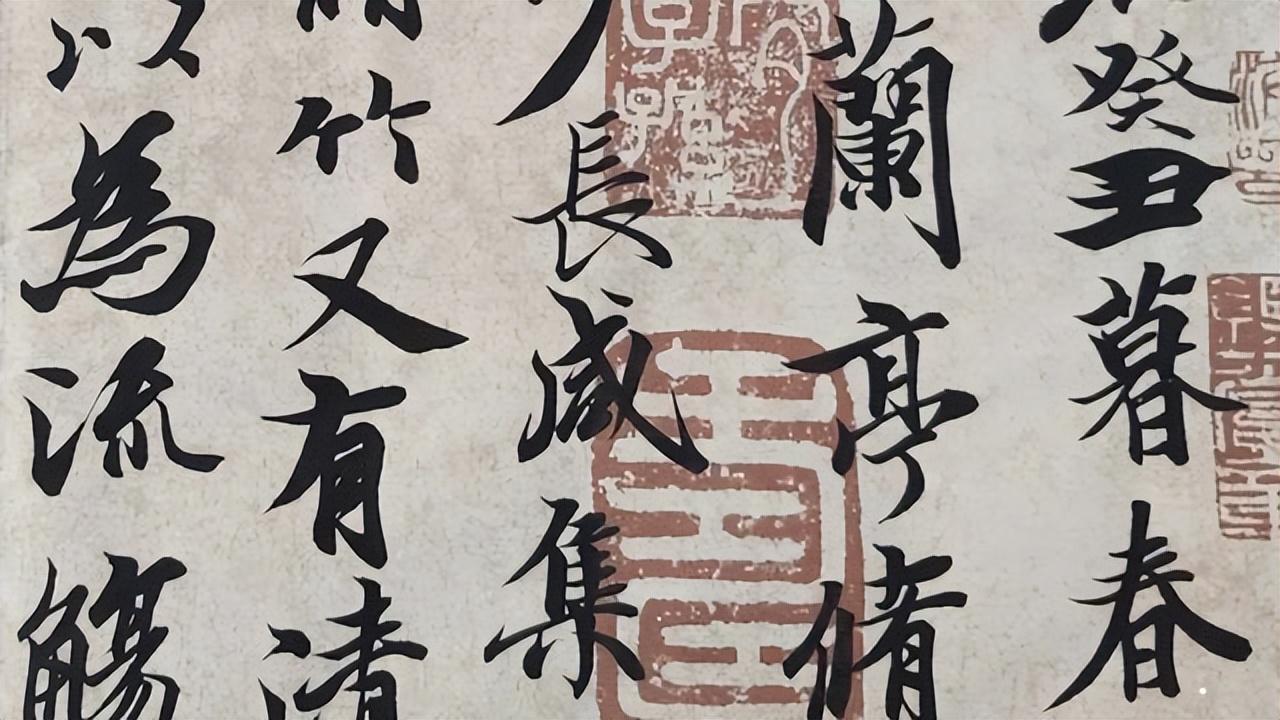 癸丑暮春
蘭亭脩
長咸集
竹又有清
以為流觴